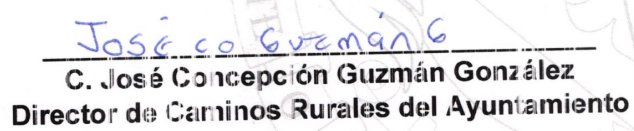 José Co Guzmán G
C. José Concepción Guzmán González
Director de Caminos Rurales del Ayuntamiento